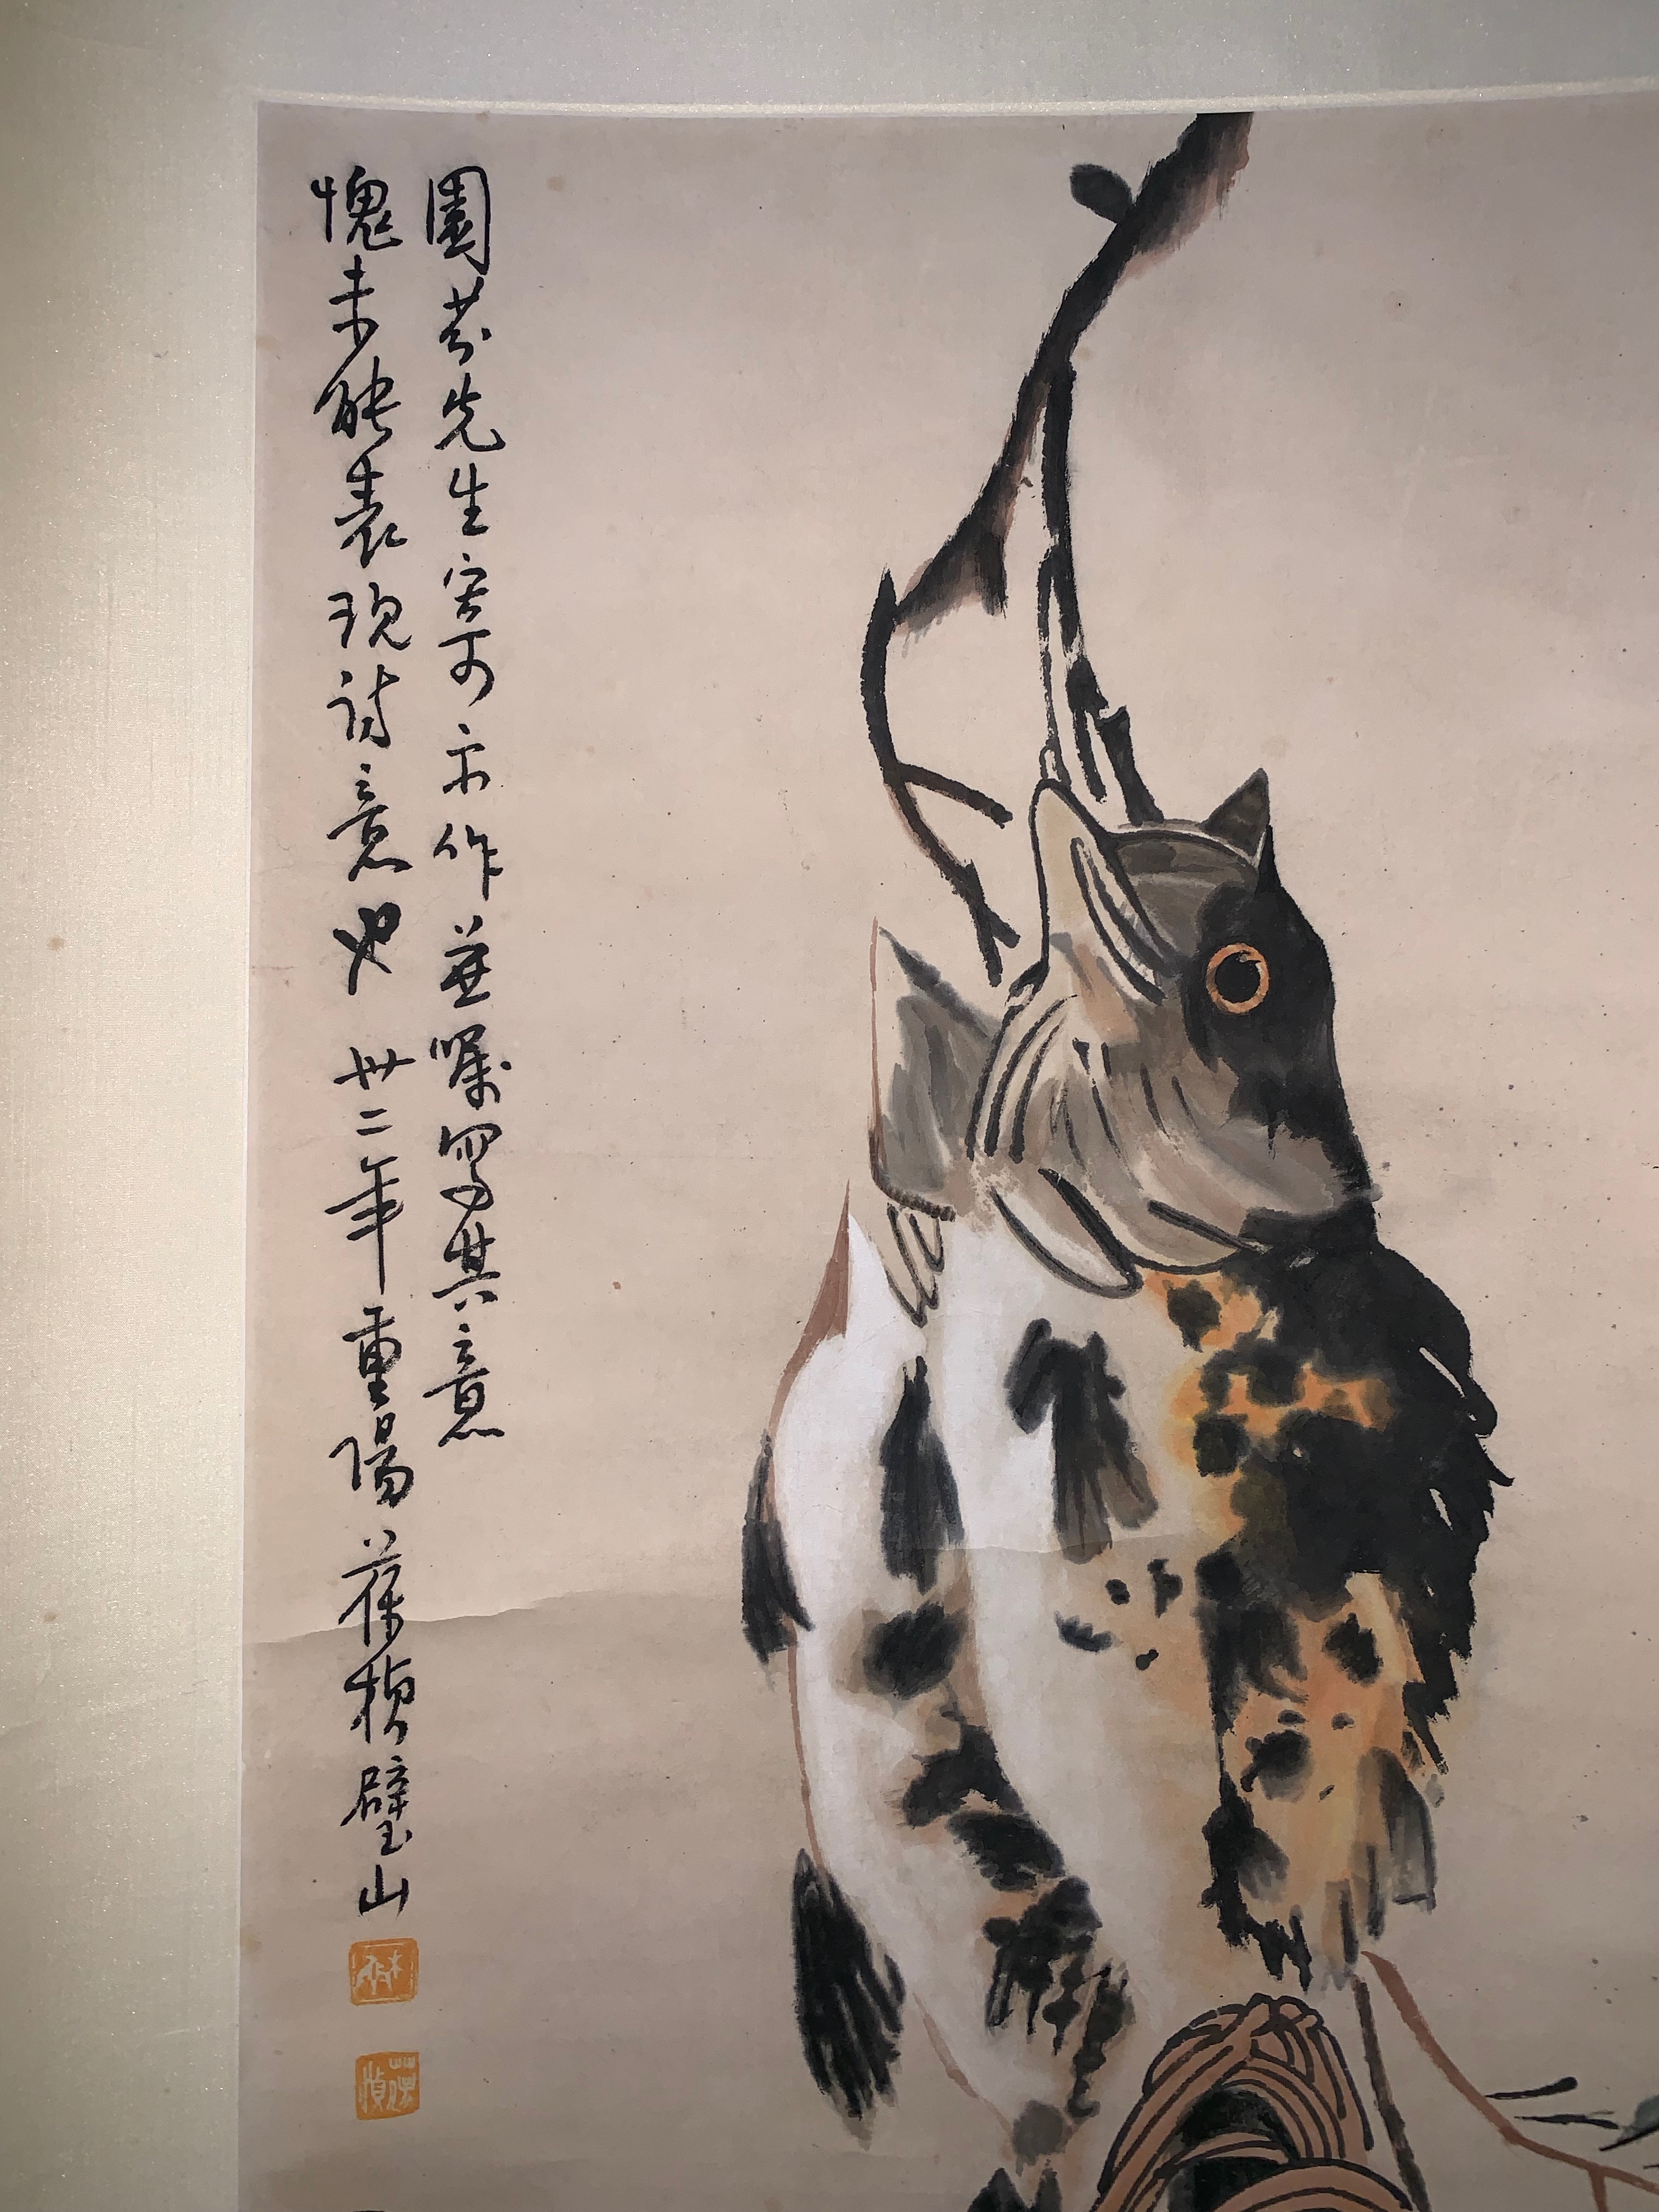 園芬先生寄示作並囑寫其意
愧未能表現詩意也 卅二年重陽葆楨璧山